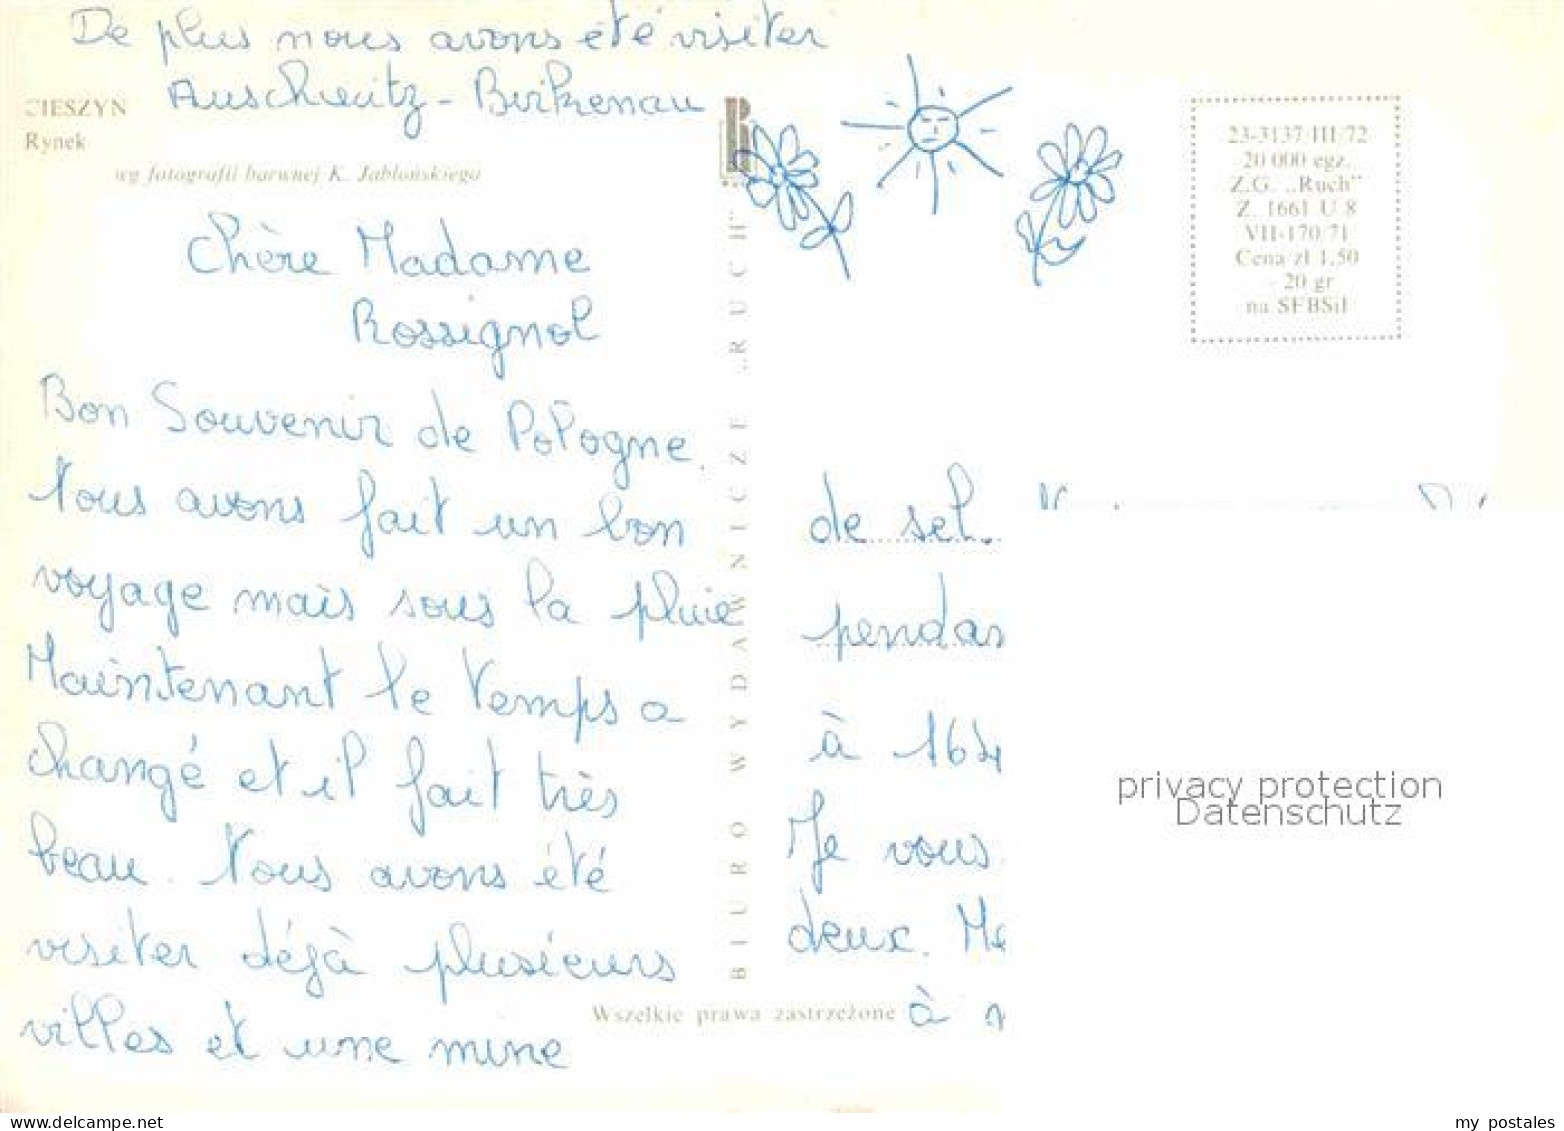 De plus nous avons été visiter
Auschwitz-Birkenau
CIESZYN
Rynek
wg fotografii barwnej K. Jabłońskiego
Chère Madame
Rossignol
Bon Souvenir de Pologne.
Nous avons fait un bon
voyage mais sous la pluie
Maintenant le temps a
changé et il fait très
beau. Nous avons été
visiter déjà plusieurs
villes et une mine
BIURO WYDAWNICZE „RUCH”
23-3137/III/72
20 000 egz.
Z.G. „Ruch”
Z. 1661 U 8
VII-170/71
Cena zł 1,50
20 gr
na SFBSiI
de sel.
pendan
à 164
Je vous
deux. Me
Wszelkie prawa zastrzeżone
à
privacy protection
Datenschutz
my postales